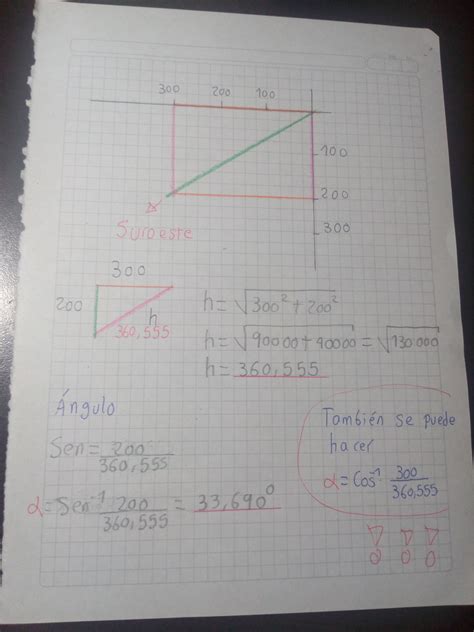 300 200 100
100
200
300
Suroeste
300
200
h
360,555
h=√300²+200²
h=√90000+40000=√130000
h=360,555
Ángulo
Sen=200/360,555
α=Sen⁻¹ 200/360,555=33,690°
También se puede
hacer
α=Cos⁻¹ 300/360,555